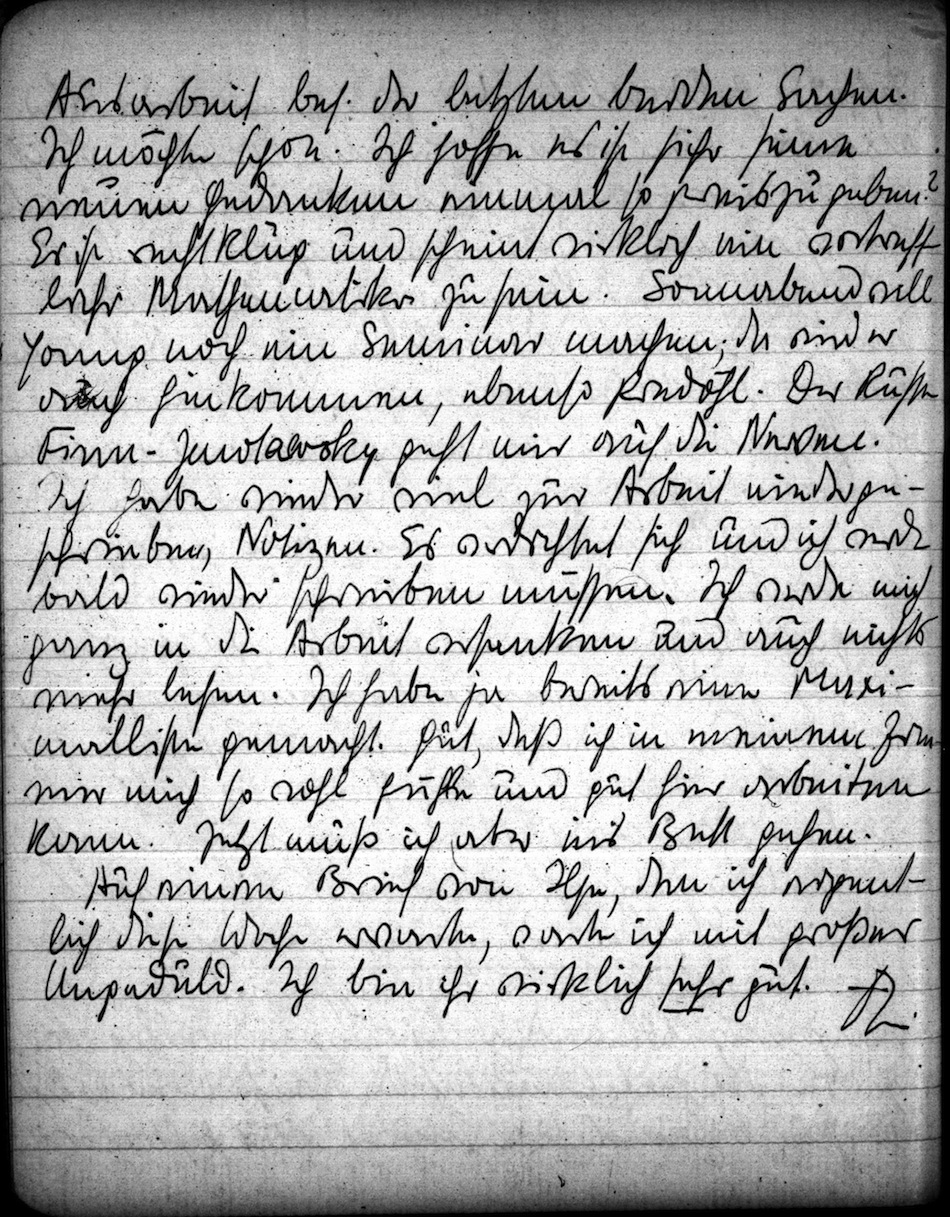 Ausarbeit bes. der letzten beiden Sachen.
Ich möchte schon. Ich hoffe es ist sicher seine
neuen Gedanken einmal so preiszugeben?
Er ist recht klug und scheint wirklich ein vortreff-
licher Mathematiker zu sein. Sonnabend will
Young noch ein Seminar machen; da wird er
auch hinkommen, ebenso Predöhl. Der Russe
Finn-Jenotaevsky geht mir auf die Nerven.
Ich habe wieder viel zur Arbeit niederge-
schrieben, Notizen. Es verdichtet sich und ich werde
bald wieder schreiben müssen. Ich werde mich
ganz in die Arbeit versenken und auch nichts
mehr lesen. Ich habe ja bereits eine Maxi-
malliste gemacht. Gut, daß ich in meinem Zim-
mer mich so wohl fühle und gut hier arbeiten
kann. Jetzt muß ich aber ins Bett gehen.
Auf einen Brief von Ilse, den ich eigent-
lich diese Woche erwarte, warte ich mit großer
Ungeduld. Ich bin ihr wirklich sehr gut.